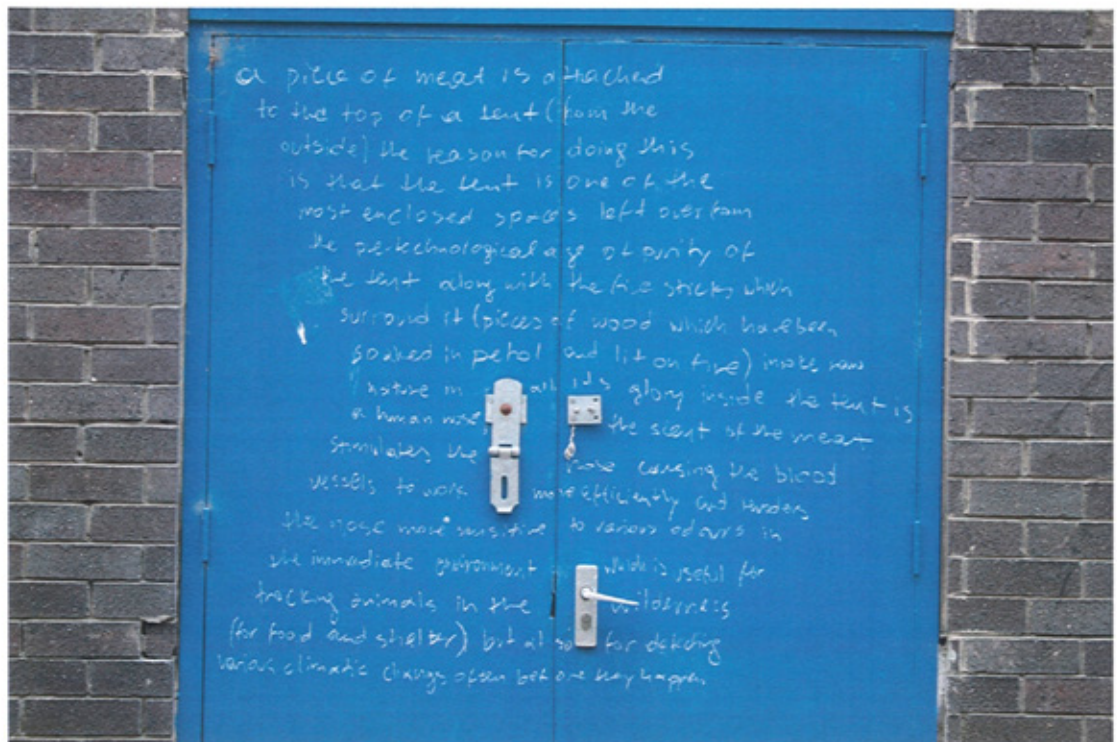 a piece of meat is attached
to the top of a tent (from the
outside) the reason for doing this
is that the tent is one of the
most enclosed spaces left over from
the pre-technological age purity of
the tent along with the fire sticks which
surround it (pieces of wood which have been
soaked in petrol and lit on fire) invoke raw
nature in all its glory inside the tent is
a human nose, the scent of the meat
stimulates the nose causing the blood
vessels to work more efficiently and renders
the nose more sensitive to various odours in
the immediate environment which is useful for
tracking animals in the wilderness
(for food and shelter) but also for detecting
various climatic changes often before they happen